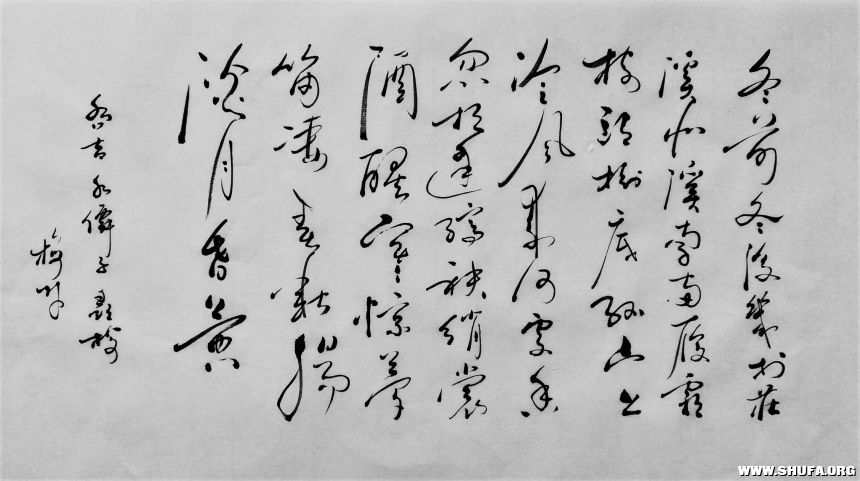 冬前冬後幾村莊
溪北溪南兩履霜
樹頭樹底孤山上
冷風來何處香
忽相逢縞袂綃裳
酒醒寒驚夢
笛淒春斷腸
淡月昏黃
喬吉水僊子尋梅
WWW.SHUFA.ORG